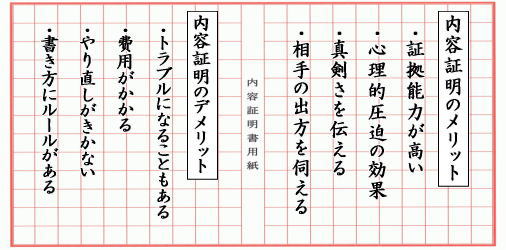 内容証明のメリット
・証拠能力が高い
・心理的圧迫の効果
・真剣さを伝える
・相手の出方を伺える
内容証明書用紙
内容証明のデメリット
・トラブルになることもある
・費用がかかる
・やり直しがきかない
・書き方にルールがある